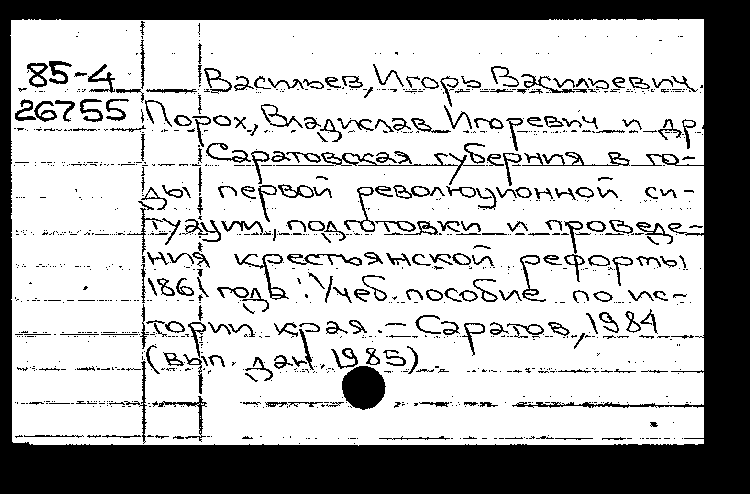 85-4 Васильев, Игорь Васильевич.
26755 Порох, Владислав Игоревич и др.
Саратовская губерния в го-
ды первой революционной си-
туации, подготовки и проведе-
ния крестьянской реформы
1861 года: Учеб. пособие по ис-
тории края. - Саратов, 1984
(вып. дан. 1985).